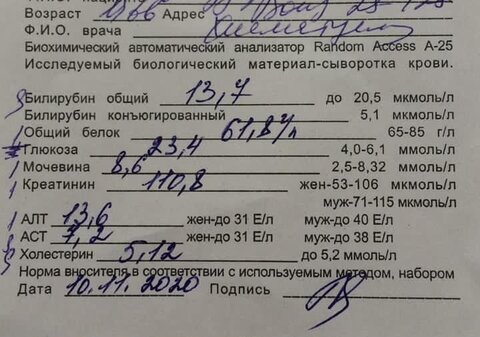 Возраст 1966 Адрес
Ф.И.О. врача
Биохимический автоматический анализатор Random Access A-25
Исследуемый биологический материал-сыворотка крови.
Билирубин общий 13,7 до 20,5 мкмоль/л
Билирубин конъюгированный 5,1 мкмоль/л
Общий белок 61,8 г/л 65-85 г/л
Глюкоза 23,4 4,0-6,1 ммоль/л
Мочевина 8,6 2,5-8,32 ммоль/л
Креатинин 110,8 жен-53-106 мкмоль/л
муж-71-115 мкмоль/л
АЛТ 13,6 жен-до 31 Е/л муж-до 40 Е/л
АСТ 7,2 жен-до 31 Е/л муж-до 38 Е/л
Холестерин 5,12 до 5,2 ммоль/л
Норма вносителя в соответствии с используемым методом, набором
Дата 10.11.2020 Подпись